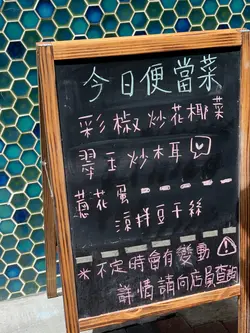 今日便當菜
彩椒炒花椰菜
翠玉炒木耳
蔥花蛋
涼拌豆干絲
*不定時會有變動
詳情請向店員查詢